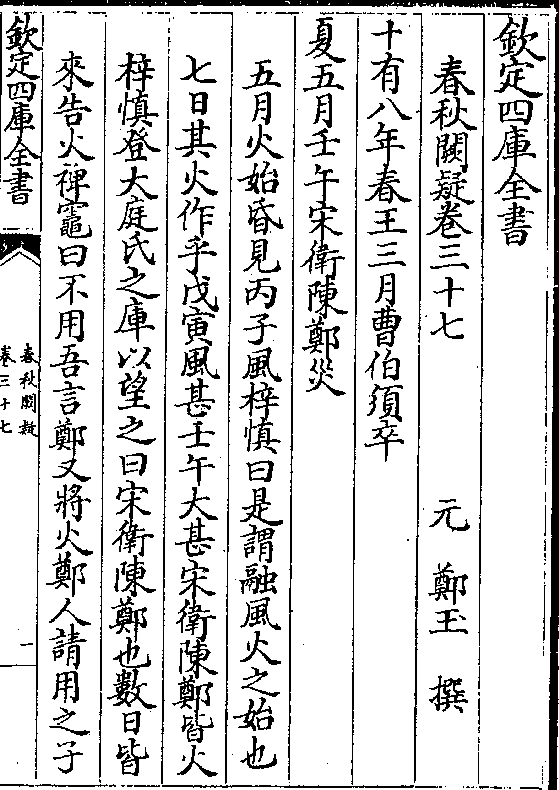 欽定四庫全書
春秋闕疑卷三十七
元 鄭玉 撰
十有八年春王三月曹伯須卒
夏五月壬午宋衛陳鄭災
五月火始昏見丙子風梓慎曰是謂融風火之始也
七日其火作乎戊寅風甚壬午大甚宋衛陳鄭皆火
梓慎登大庭氏之庫以望之曰宋衛陳鄭也數日皆
來告火裨竈曰不用吾言鄭又將火鄭人請用之子
欽定四庫全書
春秋闕疑
卷三十七
一